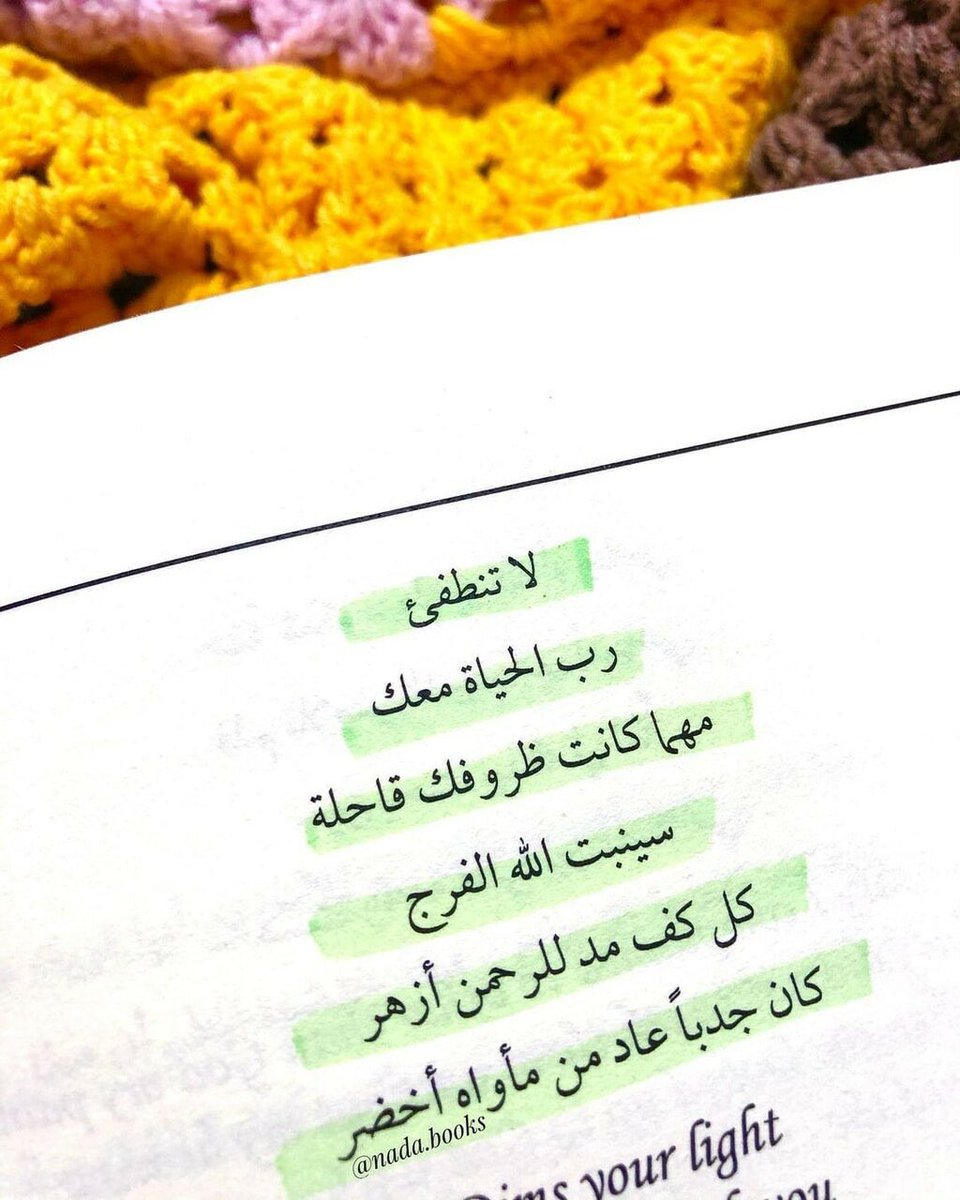 لا تنطفئ
رب الحياة معك
مهما كانت ظروفك قاحلة
سينبت الله الفرج
كل كف مد للرحمن أزهر
كان جدباً عاد من مأواه أخضر
@nada.books
your light